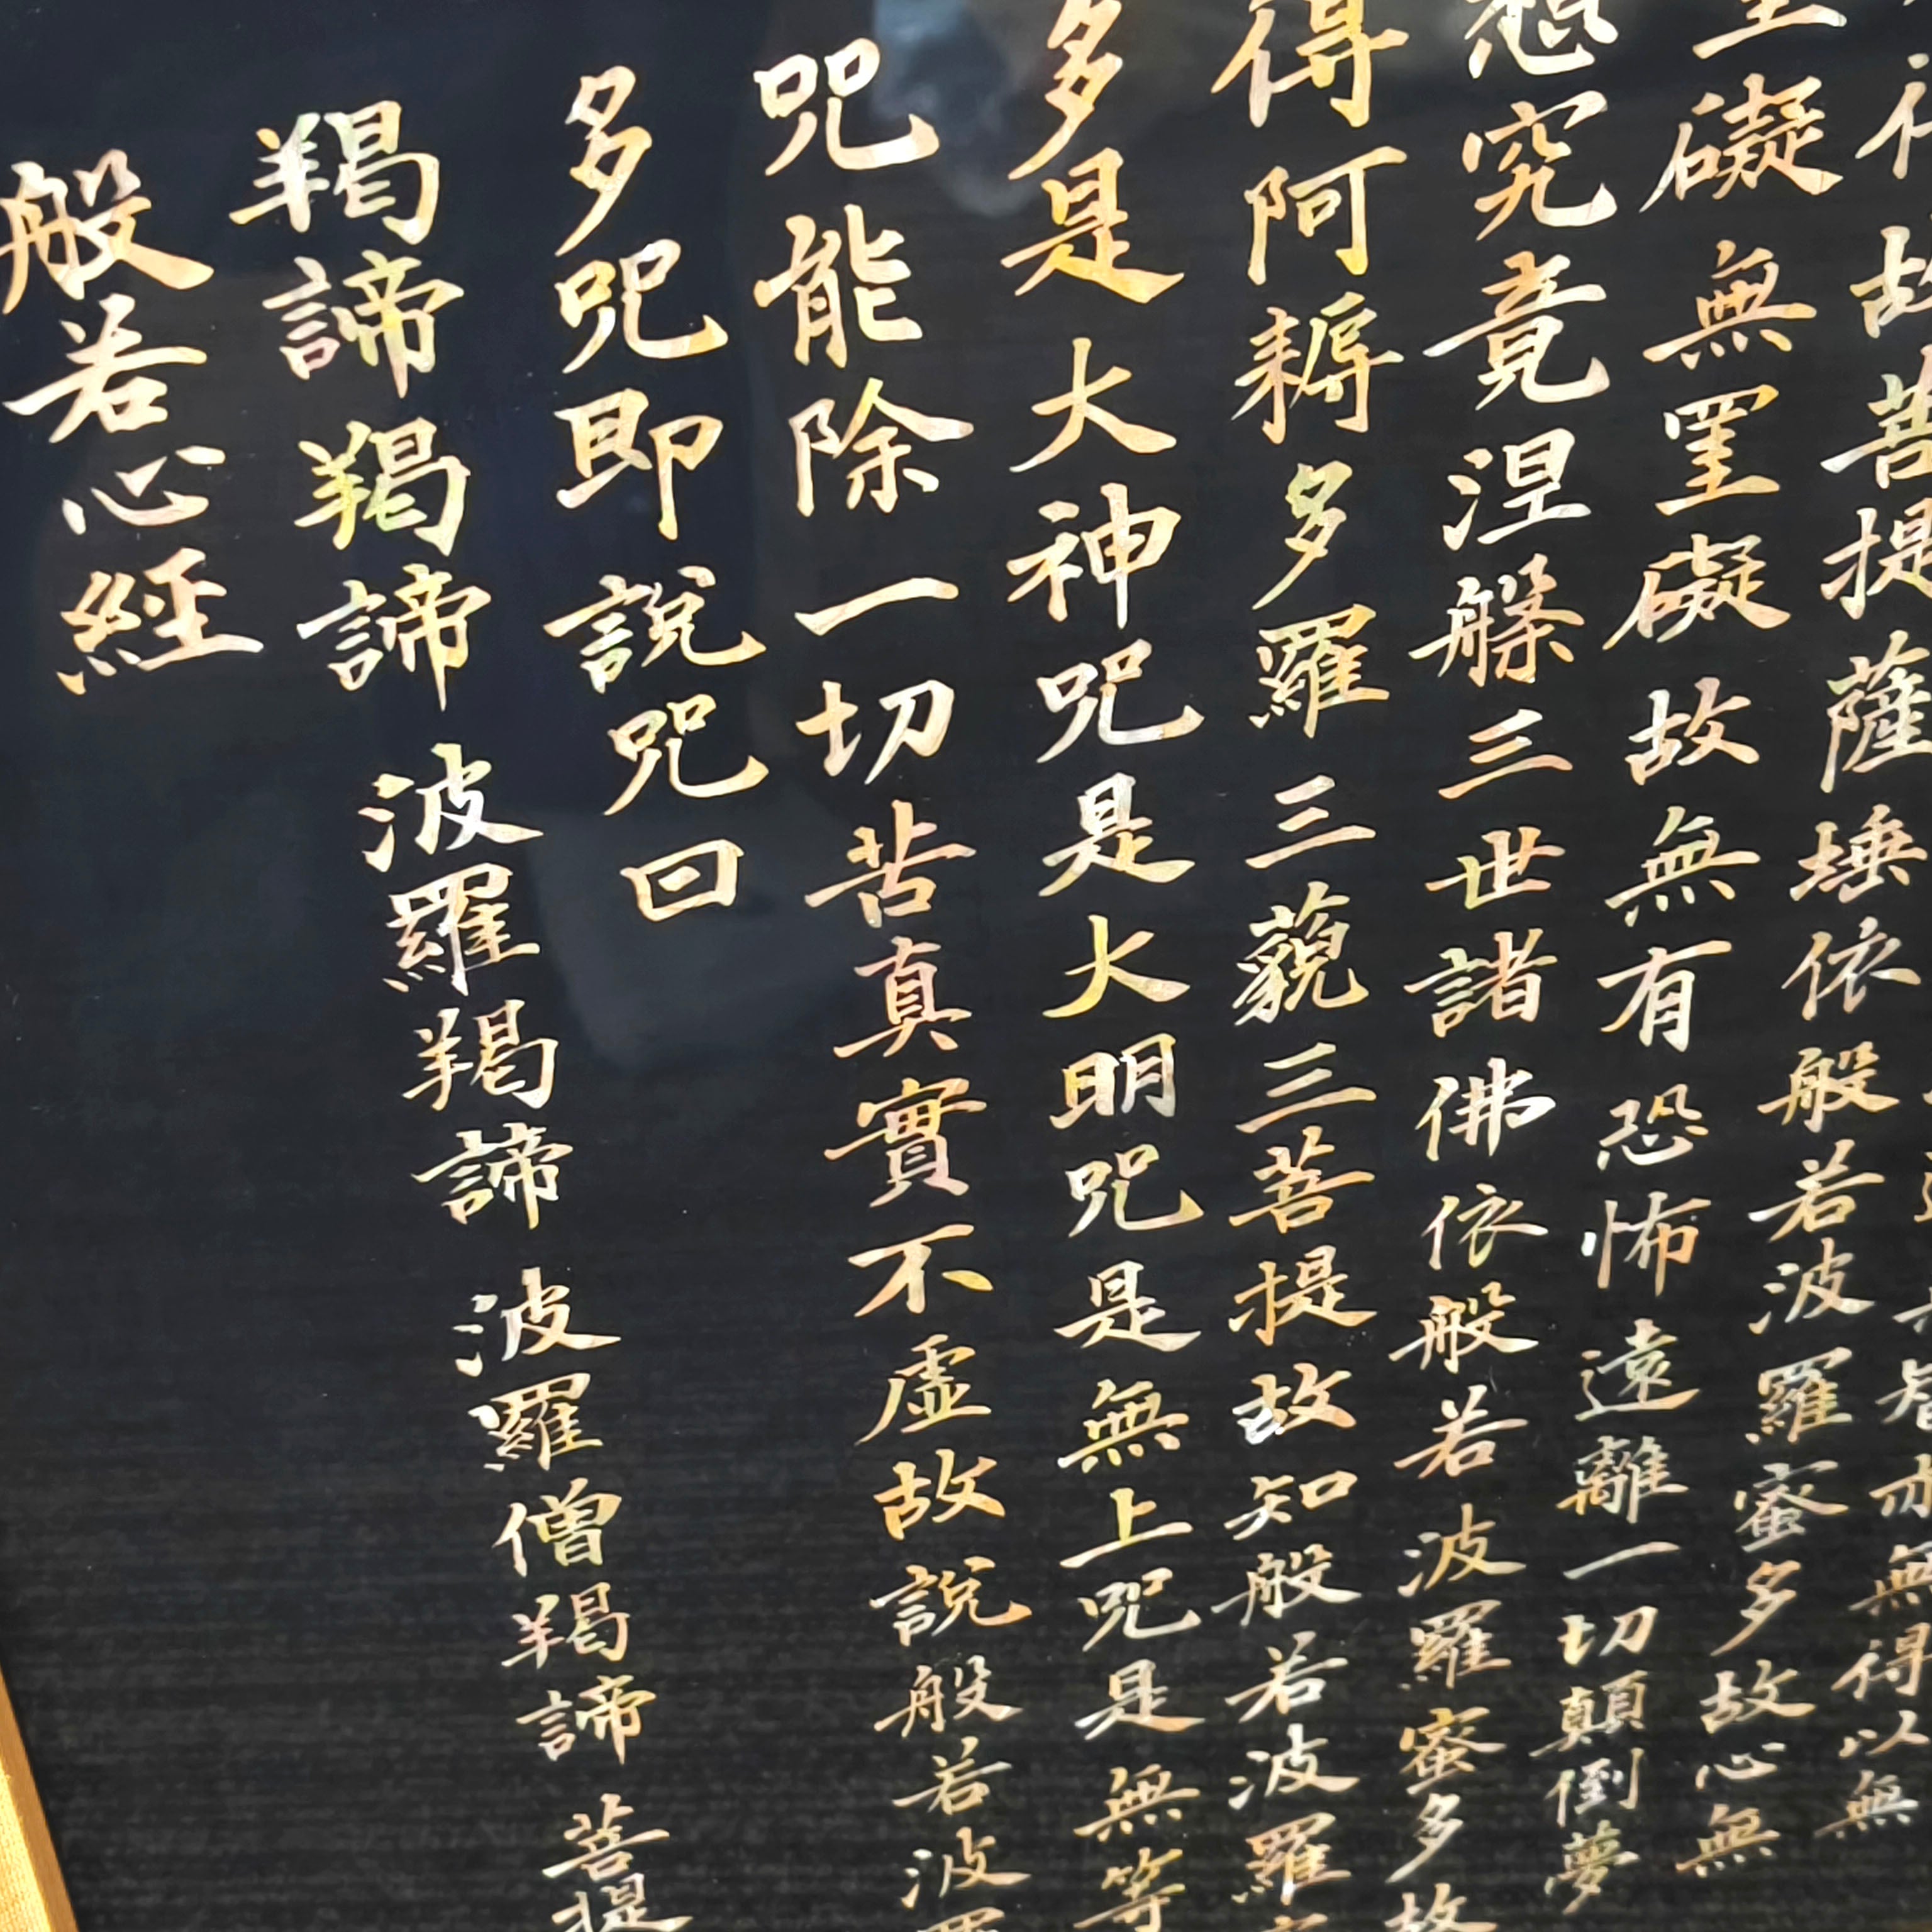 智亦無得以無
故菩提薩埵依般若波羅蜜多故心無
礙無罣礙故無有恐怖遠離一切顛倒夢
想究竟涅槃三世諸佛依般若波羅蜜多故
得阿耨多羅三藐三菩提故知般若波羅
多是大神咒是大明咒是無上咒是無等
咒能除一切苦真實不虛故說般若波
多咒即說咒曰
羯諦羯諦 波羅羯諦 波羅僧羯諦 菩提
般若心經